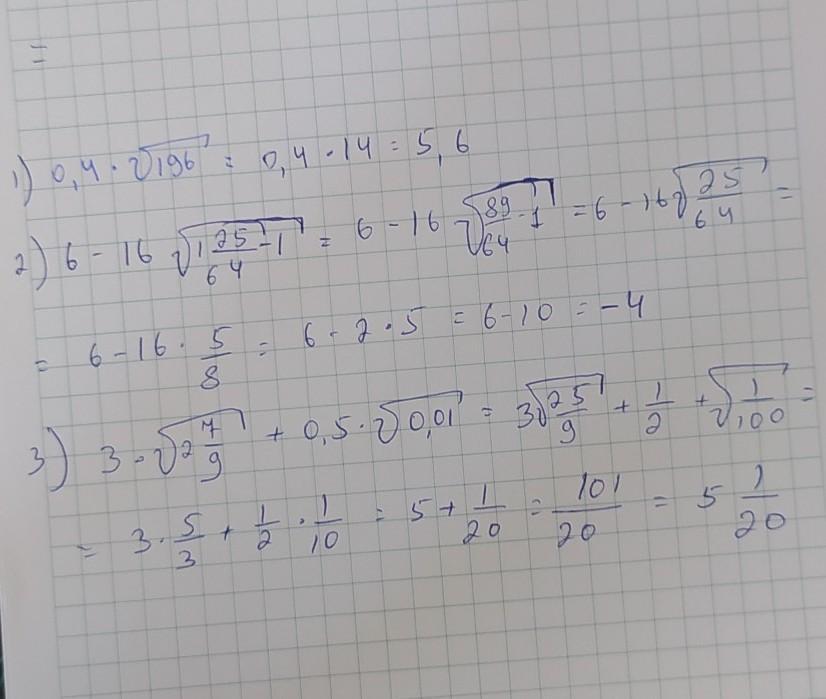 =
1) 0,4 · √196 = 0,4 · 14 = 5,6
2) 6 - 16 √(1 25/64 - 1) = 6 - 16 √(89/64 - 1) = 6 - 16 √(25/64) =
= 6 - 16 · 5/8 = 6 - 2 · 5 = 6 - 10 = -4
3) 3 · √(2 7/9) + 0,5 · √0,01 = 3√(25/9) + 1/2 + √(1/100) =
= 3 · 5/3 + 1/2 · 1/10 = 5 + 1/20 = 101/20 = 5 1/20